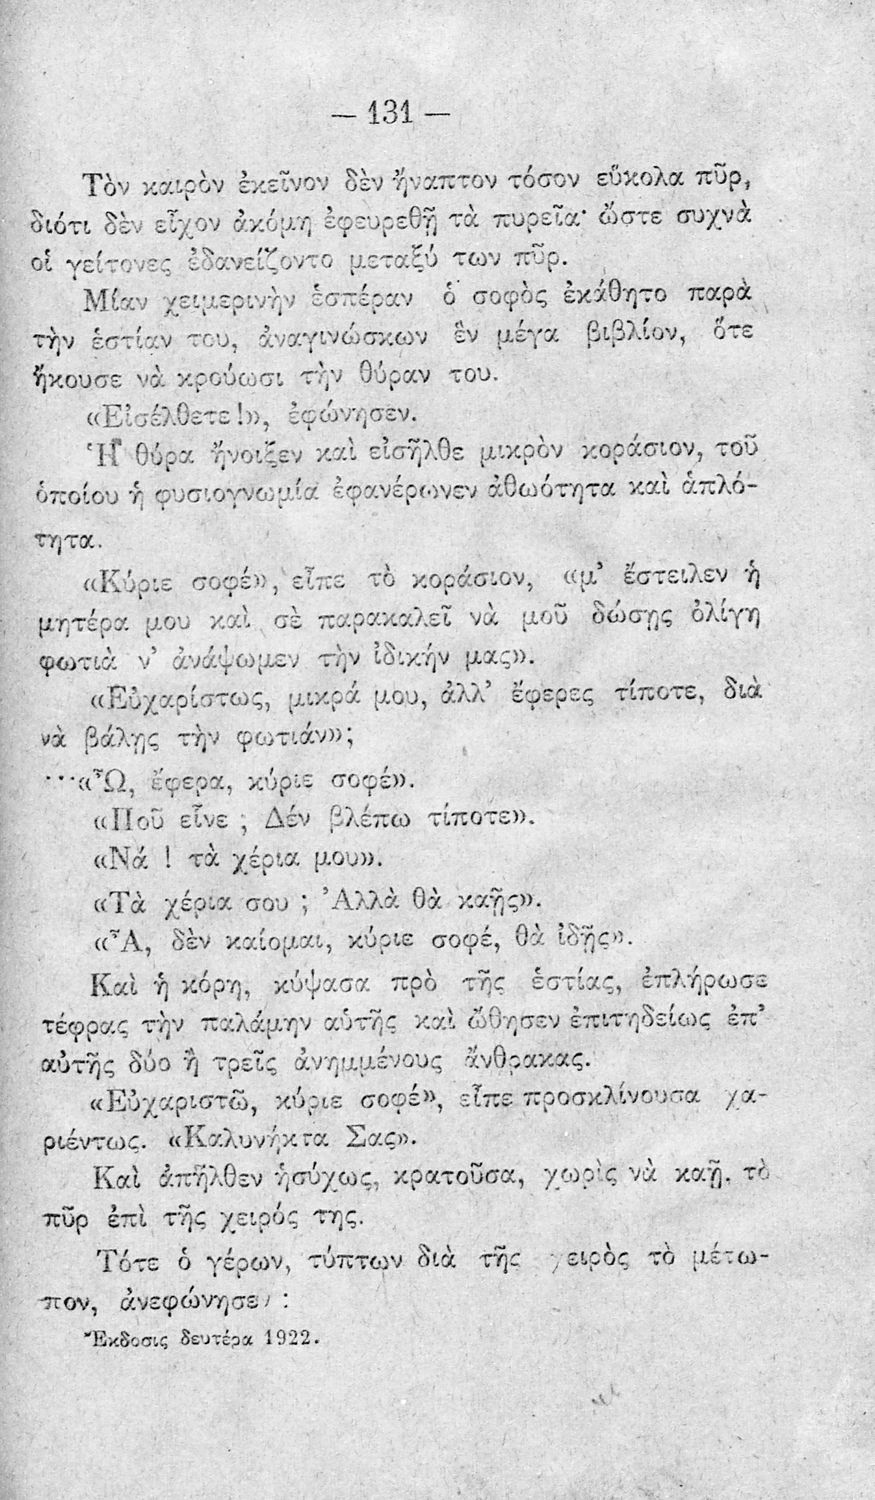 — 131 —
Τὸν καιρὸν ἐκεῖνον δὲν ἤναπτον τόσον εὔκολα πῦρ,
διότι δὲν εἶχον ἀκόμη ἐφευρεθῇ τὰ πυρεῖα· ὥστε συχνὰ
οἱ γείτονες ἐδανείζοντο μεταξύ των πῦρ.
Μίαν χειμερινὴν ἑσπέραν ὁ σοφὸς ἐκάθητο παρὰ
τὴν ἑστίαν του, ἀναγινώσκων ἓν μέγα βιβλίον, ὅτε
ἤκουσε νὰ κρούωσι τὴν θύραν του.
«Εἰσέλθετε!», ἐφώνησεν.
Ἡ θύρα ἤνοιξεν καὶ εἰσῆλθε μικρὸν κοράσιον, τοῦ
ὁποίου ἡ φυσιογνωμία ἐφανέρωνεν ἀθωότητα καὶ ἁπλό-
τητα.
«Κύριε σοφέ», εἶπε τὸ κοράσιον, «μ’ ἔστειλεν ἡ
μητέρα μου καὶ σὲ παρακαλεῖ νὰ μοῦ δώσῃς ὀλίγη
φωτιὰ ν’ ἀνάψωμεν τὴν ἰδικήν μας».
«Εὐχαρίστως, μικρά μου, ἀλλ’ ἔφερες τίποτε, διὰ
νὰ βάλῃς τὴν φωτιάν»;
«Ὦ, ἔφερα, κύριε σοφέ».
«Ποῦ εἶνε ; Δέν βλέπω τίποτε».
«Νά ! τὰ χέρια μου».
«Τὰ χέρια σου ; Ἀλλὰ θὰ καῇς».
«Ἆ, δὲν καίομαι, κύριε σοφέ, θὰ ἰδῇς».
Καὶ ἡ κόρη, κύψασα πρὸ τῆς ἑστίας, ἐπλήρωσε
τέφρας τὴν παλάμην αὑτῆς καὶ ὤθησεν ἐπιτηδείως ἐπ’
αὐτῆς δύο ἢ τρεῖς ἀνημμένους ἄνθρακας.
«Εὐχαριστῶ, κύριε σοφέ», εἶπε προσκλίνουσα χα-
ριέντως. «Καλυνήκτα Σας».
Καὶ ἀπῆλθεν ἡσύχως, κρατοῦσα, χωρὶς νὰ καῇ, τὸ
πῦρ ἐπὶ τῆς χειρός της.
Τότε ὁ γέρων, τύπτων διὰ τῆς χειρὸς τὸ μέτω-
πον, ἀνεφώνησε :
Ἔκδοσις δευτέρα 1922.